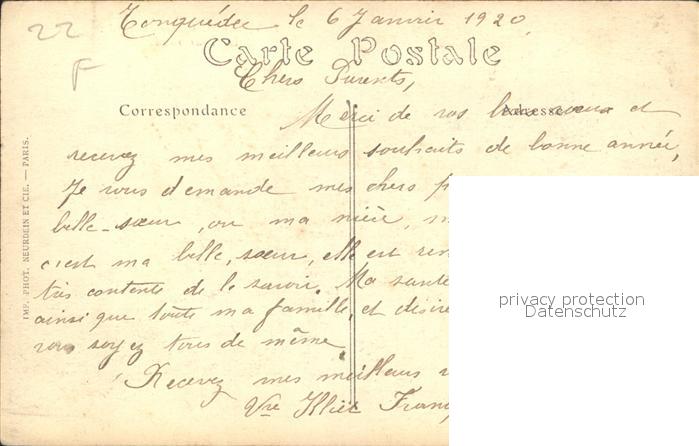 22
F
Tonquédec le 6 Janvier 1920
Carte Postale
Chers Parents,
Correspondance
Adresse
Merci de vos bons voeux et
recevez mes meilleurs souhaits de bonne année,
Je vous demande mes chers
belle-sœur, ou ma nièce,
c'est ma belle-sœur, elle est
très contente de le savoir. Ma santé
ainsi que toute ma famille, et désire
vous soyez tous de même.
Recevez mes meilleurs
Vve
IMP. PHOT. NEURDEIN ET CIE. — PARIS.
privacy protection
Datenschutz